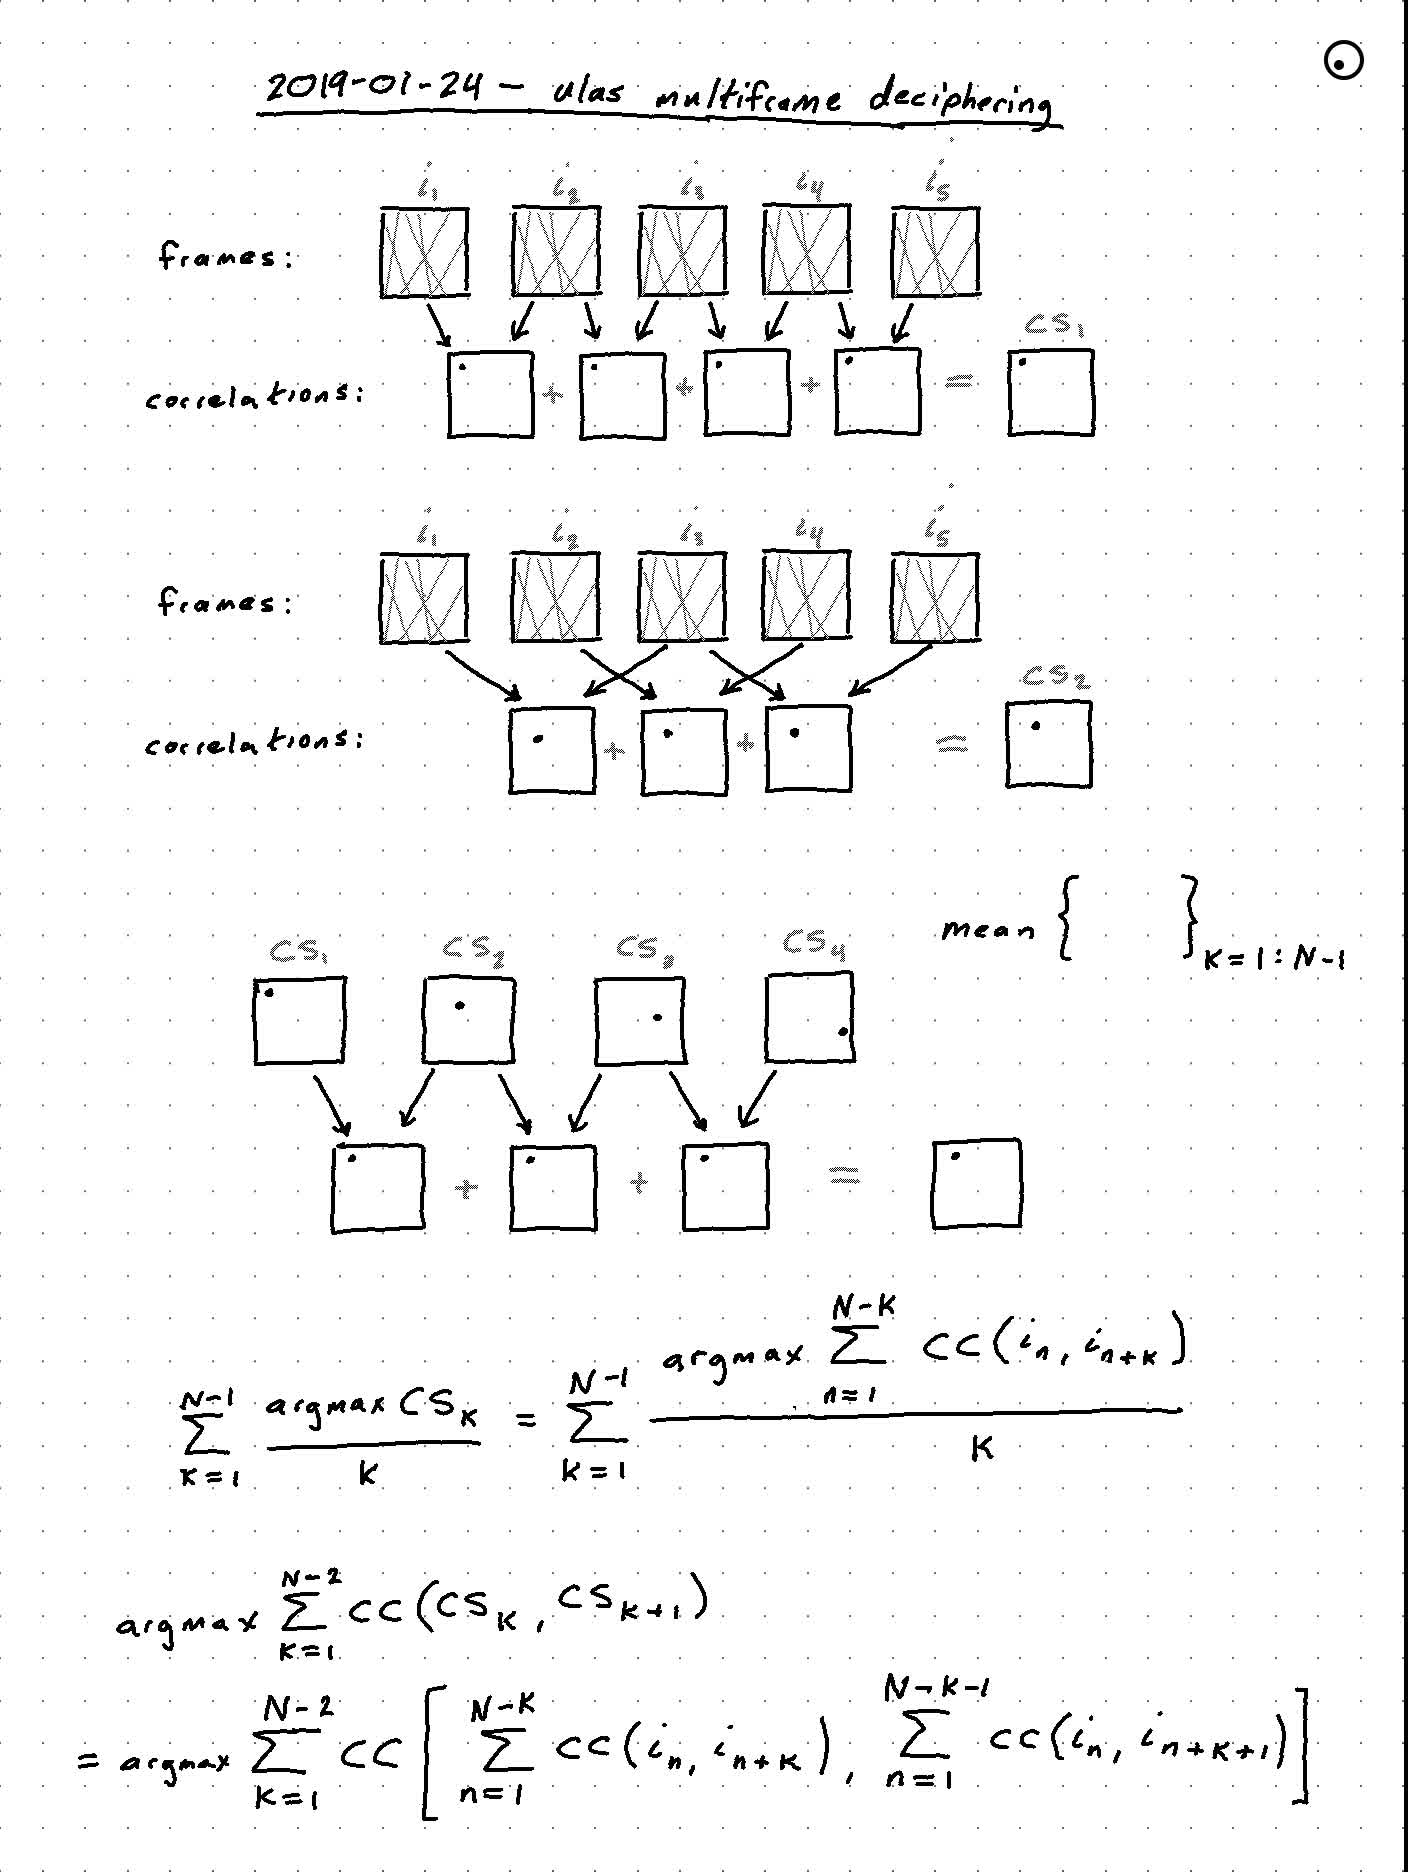 2019-01-24 - ulas multiframe deciphering
i₁ i₂ i₃ i₄ i₅
frames:
CS₁
correlations: + + + =
i₁ i₂ i₃ i₄ i₅
frames:
CS₂
correlations: + + =
mean { }ₖ₌₁:N-1
CS₁ CS₂ CS₃ CS₄
+ + =
∑_{k=1}^{N-1} (argmax CS_k)/k = ∑_{k=1}^{N-1} (argmax ∑_{n=1}^{N-k} CC(i_n, i_{n+k}))/k
argmax ∑_{k=1}^{N-2} CC(CS_k, CS_{k+1})
= argmax ∑_{k=1}^{N-2} CC[∑_{n=1}^{N-k} CC(i_n, i_{n+k}), ∑_{n=1}^{N-k-1} CC(i_n, i_{n+k+1})]